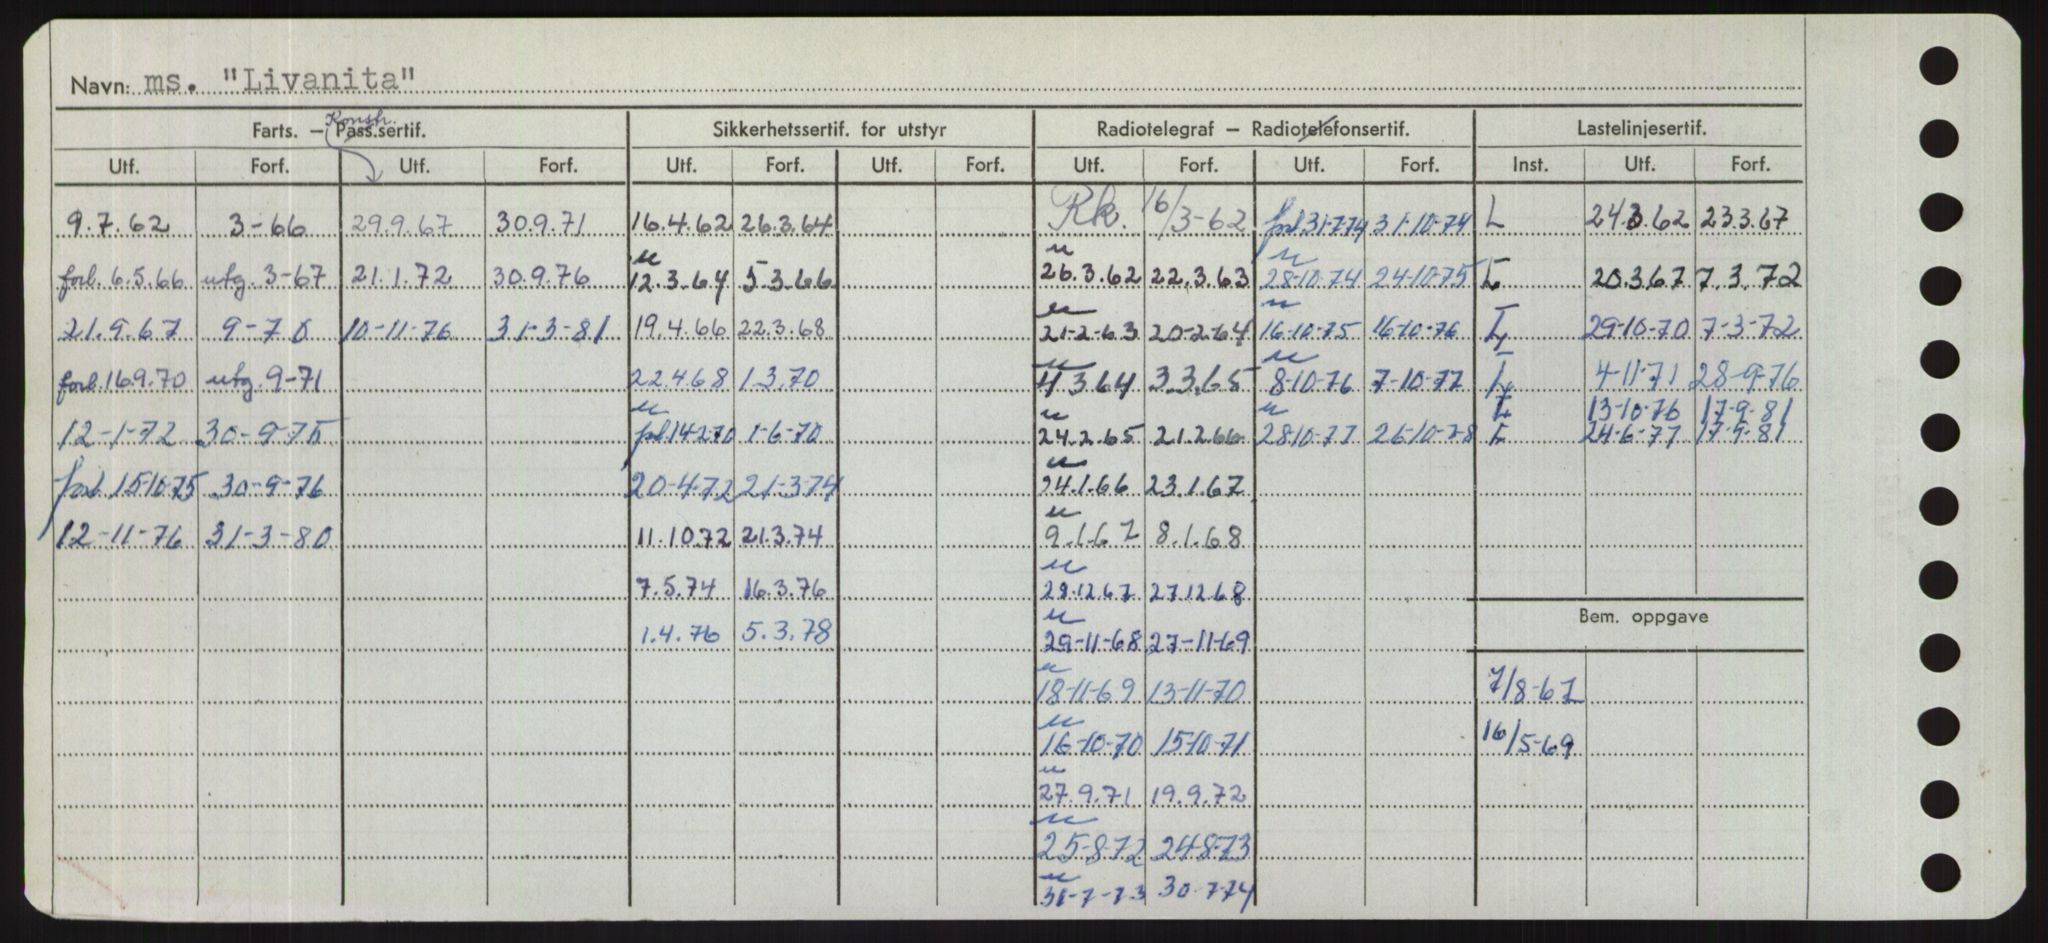 Navn: ms. "Livanita"
Konstr.
Farts. – Pass.sertif. Sikkerhetssertif. for utstyr Radiotelegraf – Radiotelefonsertif. Lastelinjesertif.
Utf. Forf. Utf. Forf. Utf. Forf. Utf. Forf. Utf. Forf. Utf. Forf. Inst. Utf. Forf.
9.7.62 3-66 29.9.67 30.9.71 16.4.62 26.3.64 Rk. 16/3-62 forl 31-7-74 31-10-74 L 24.3.62 23.3.67
forl. 6.5.66 utg. 3-67 21.1.72 30.9.76 12.3.64 5.3.66 26.3.62 22.3.63 28-10-74 24-10-75 L 20.3.67 7.3.72
21.9.67 9-70 10-11-76 31-3-81 19.4.66 22.3.68 21-2-63 20-2-64 16-10-75 16-10-76 L 29-10-70 7-3-72
forl. 16.9.70 utg. 9-71 22.4.68 1.3.70 4.3.64 3.3.65 8-10-76 7-10-77 L 4-11-71 28-9-76
L 13-10-76 17-9-81
12-1-72 30-9-75 forl 14.2.70 1-6-70 24.2.65 21.2.66 28-10-77 26-10-78 L 24-6-77 17-9-81
forl. 15-10-75 30-9-76 20-4-72 21-3-74 24.1.66 23.1.67
12-11-76 31-3-80 11.10.72 21.3.74 9.1.67 8.1.68
7.5.74 16.3.76 29.12.67 27.12.68
Bem. oppgave
1.4.76 5.3.78 29-11-68 27-11-69
18-11-69 13-11-70 7/8-67
16-10-70 15-10-71 16/5-69
27.9.71 19.9.72
25-8-72 24-8-73
31-7-73 30-7-74